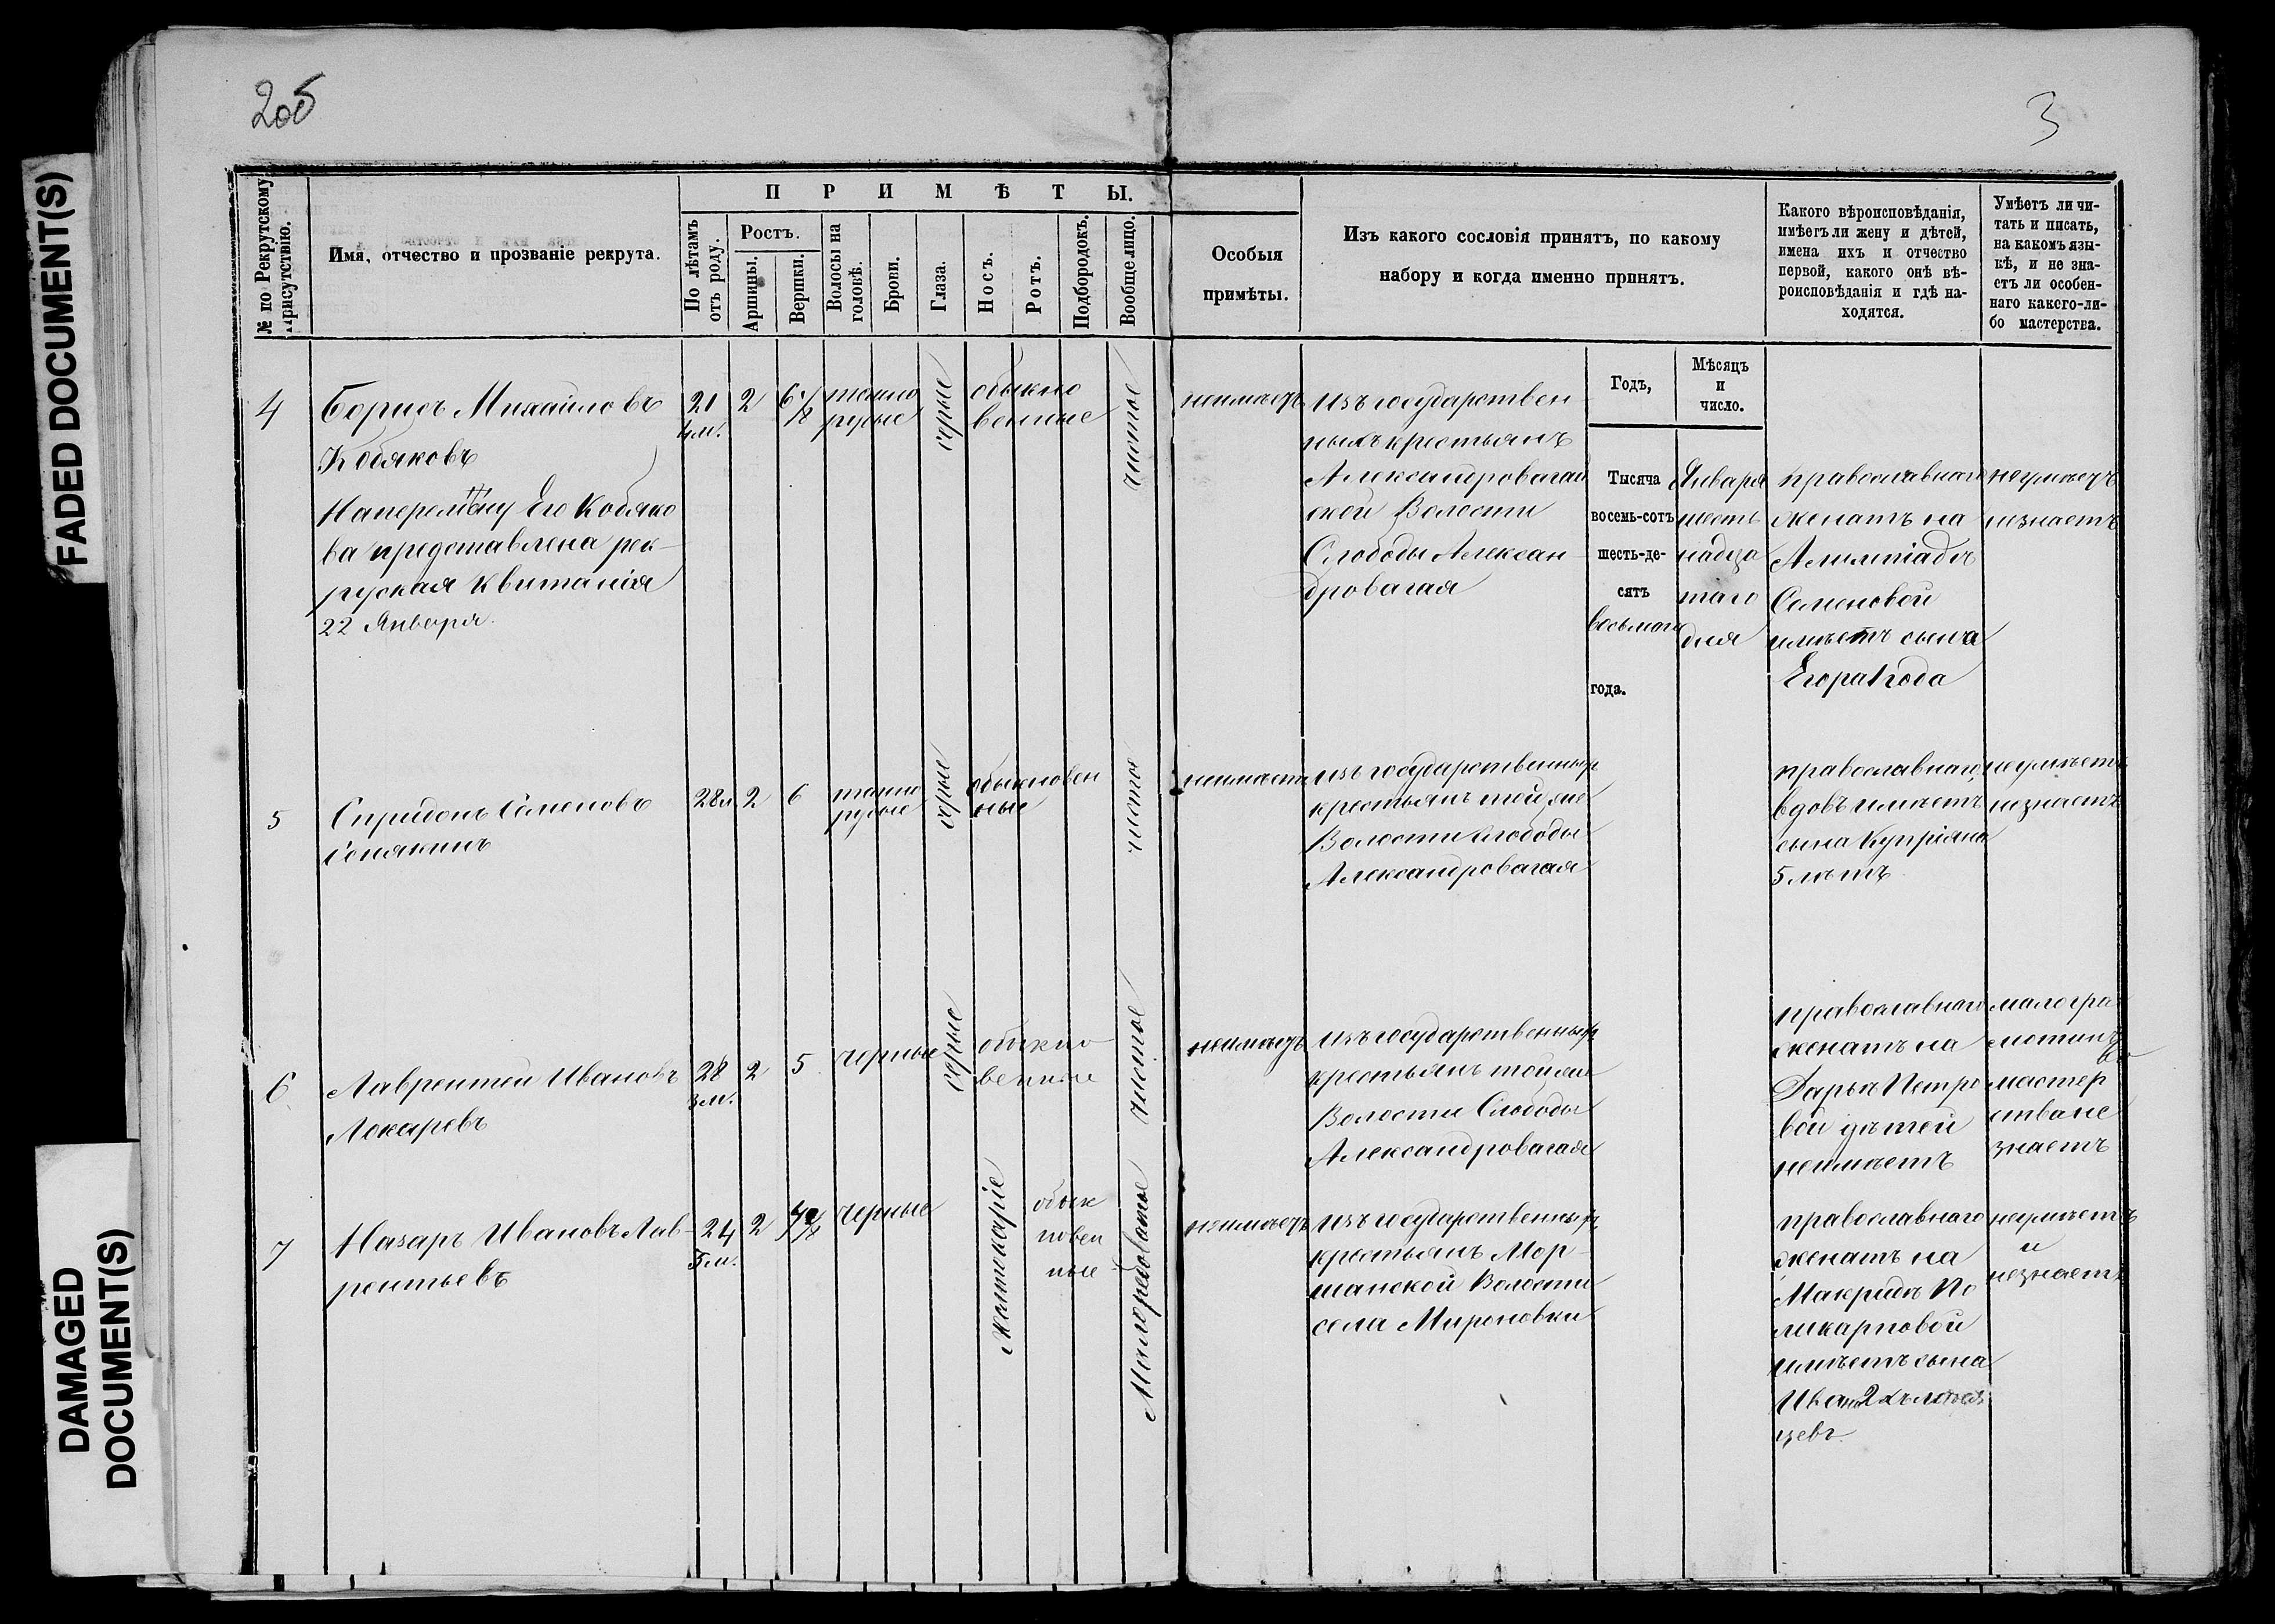 FADED DOCUMENT(S)
DAMAGED
DOCUMENT(S)
2об
3
№ по Рекрутскому
присутствію.
Имя, отчество и прозваніе рекрута.
ПРИМѢТЫ.
По лѣтамъ
отъ роду.
Ростъ.
Аршины.
Вершки.
Волосы на
головѣ.
Брови.
Глаза.
Носъ.
Ротъ.
Подбородокъ.
Вообще лицо.
Особыя
примѣты.
Изъ какого сословія принятъ, по какому
набору и когда именно принятъ.
Какого вѣроисповѣданія,
имѣетъ ли жену и дѣтей,
имена ихъ и отчество
первой, какого онѣ вѣ-
роисповѣданія и гдѣ на-
ходятся.
Умѣетъ ли чи-
тать и писать,
на какомъ язы-
кѣ, и не зна-
етъ ли особен-
наго какого-ли-
бо мастерства.
Годъ,
Мѣсяцъ
и
число.
4
Борисъ Михайловъ
Кобяковъ
Наперемѣну Его Кобяко
ва представлена рек-
рутская Квитанія
22 Января.
21
4м.
2
6 1/2
темно
русые
серые
обыкно
венные
чистое
неимѣетъ
изъ государствен
ныхъ крестьянъ
Александровагай
ской Волости
Слободы Алексан-
дровагая
Тысяча
восемь-сотъ
шесть-де-
сятъ
восьмаго
года.
Января
шест
надца
таго
дня
православнаго
женатъ на
Алимпіадѣ
Семеновой
имѣетъ сына
Егора 1 года
неумѣетъ
незнаетъ
5
Спридонъ Семеновъ
28л.
2
6
темно
русые
серые
обыкновен
ные
чистое
неимѣетъ
изъ государственныхъ
крестьянъ той же
Волости Слободы
Александровагая
православнаго
вдовъ имѣетъ
сына Купріяна
5 лѣтъ
неумѣетъ
незнаетъ
6
Лаврентей Ивановъ
Локаревъ
28
3м.
2
5
черные
серые
обыкно-
венные
чистое
неимѣетъ
изъ государственныхъ
крестьянъ той же
Волости Слободы
Александровагая
православнаго
женатъ на
Дарьѣ Петро
вой дѣтей
неимѣетъ
малогра
мотинъ
мастер
ства не
знаетъ
7
Назаръ Ивановъ Лав-
рентьевъ
24
5м.
2
черные
желтокаріе
обык
новен
ные
Малорябоватое
неимѣетъ
изъ государственныхъ
крестьянъ Мор-
шанской Волости
села Мироновки
православнаго
женатъ на
Макридѣ По
ликарповой
имѣетъ сына
Ивана 2хъ мѣся
цевъ
неумѣетъ
и
незнаетъ